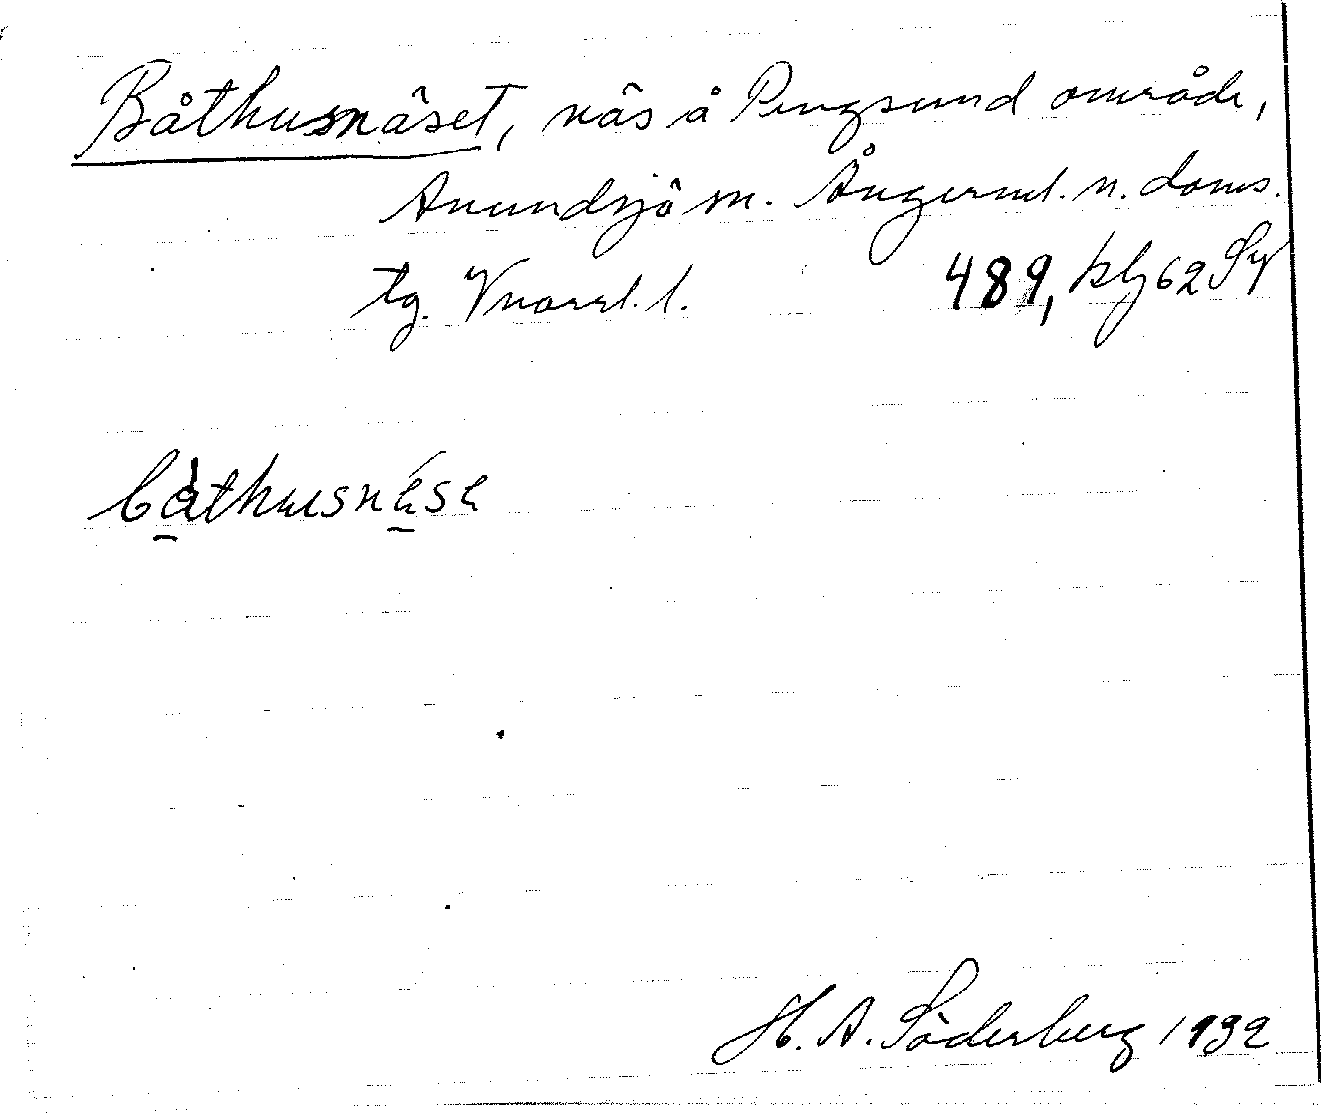 Båthusnäset, näs å Pengsund område,
Anundsjö sn. Ångerml. n. doms.
tg. Vnorrl. l. 489, klj 62 Sy
båthusnése
H. A. Söderberg 1932